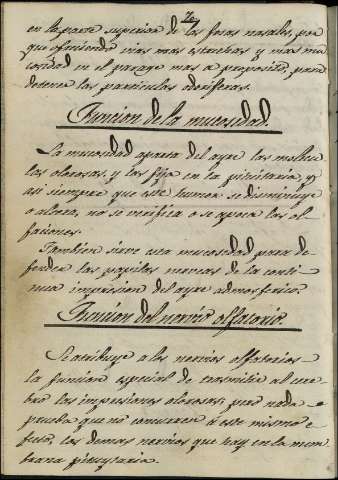 en la parte superior de las fosas nasales, por
que ofreciendo vias mas estrechas y mas mu
cosidad en el parage mas a proposito, para
detener las particulas odoriferas.
Funcion de la mucosidad.
La mucosidad aparta del ayre las molecu
las olorosas, y las fija en la pituitaria, y
asi siempre que este humor se disminuye
o altera, no se verifica o se apoca las ol
faciones.
Tambien sirve esa mucosidad para de
fender las papilas nerveas de la conti
nua impresion del ayre admosferico.
Funcion del nervio olfatorio.
Se atribuye a los nervios olfatorios
la funcion especial de trasmitir al cere
bro las impresiones olorosas; pero nada
prueba que no concurren a este mismo e
fecto, los demas nervios que hay en la mem
brana pituytaria.